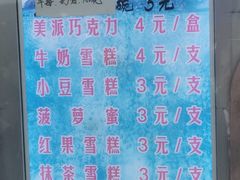 美派巧克力 4元/盒
牛奶雪糕 4元/支
小豆雪糕 3元/支
菠萝蜜 3元/支
红果雪糕 3元/支
抹茶雪糕 3元/支